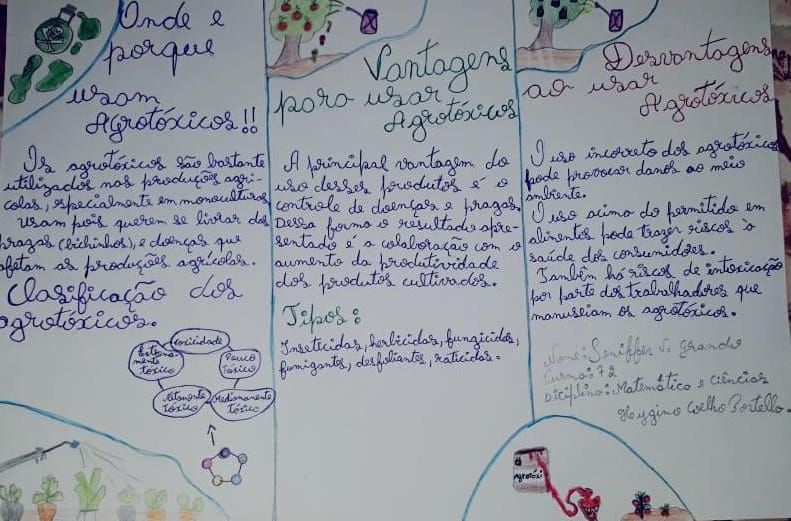 Onde e
porque
usam
Agrotóxicos!!
Os agrotóxicos são bastante
utilizados nas produções agrí-
colas, especialmente em monoculturas
Usam pois querem se livrar das
pragas (bichinhos), e doenças que
afetam as produções agrícolas.
Clasificação dos
agrotóxicos.
Toxicidade
Extrema-
mente
tóxico
Pouco
Tóxico
Altamente
tóxico
Medianamente
tóxico
Vantagens
para usar
Agrotóxicos
A principal vantagem do
uso desses produtos é o
controle de doenças e pragas.
Dessa forma o resultado apre-
sentado é a colaboração com o
aumento da produtividade
dos produtos cultivados.
Tipos:
Inseticidas, herbicidas, fungicidas,
fumigantes, desfoliantes, raticidas.
Desvantagens
ao usar
Agrotóxicos
O uso incorreto dos agrotóxicos
pode provocar danos ao meio
ambiente.
O uso acima do permitido em
alimentos pode trazer riscos à
saúde dos consumidores.
Também há riscos de intoxicação
por parte dos trabalhadores que
manuseiam os agrotóxicos.
Nome: Seniffer V. Grando
Turma: 72
Diciplina: Matemática e Ciências
Heygino Coelho Portello.
Agrotóxi